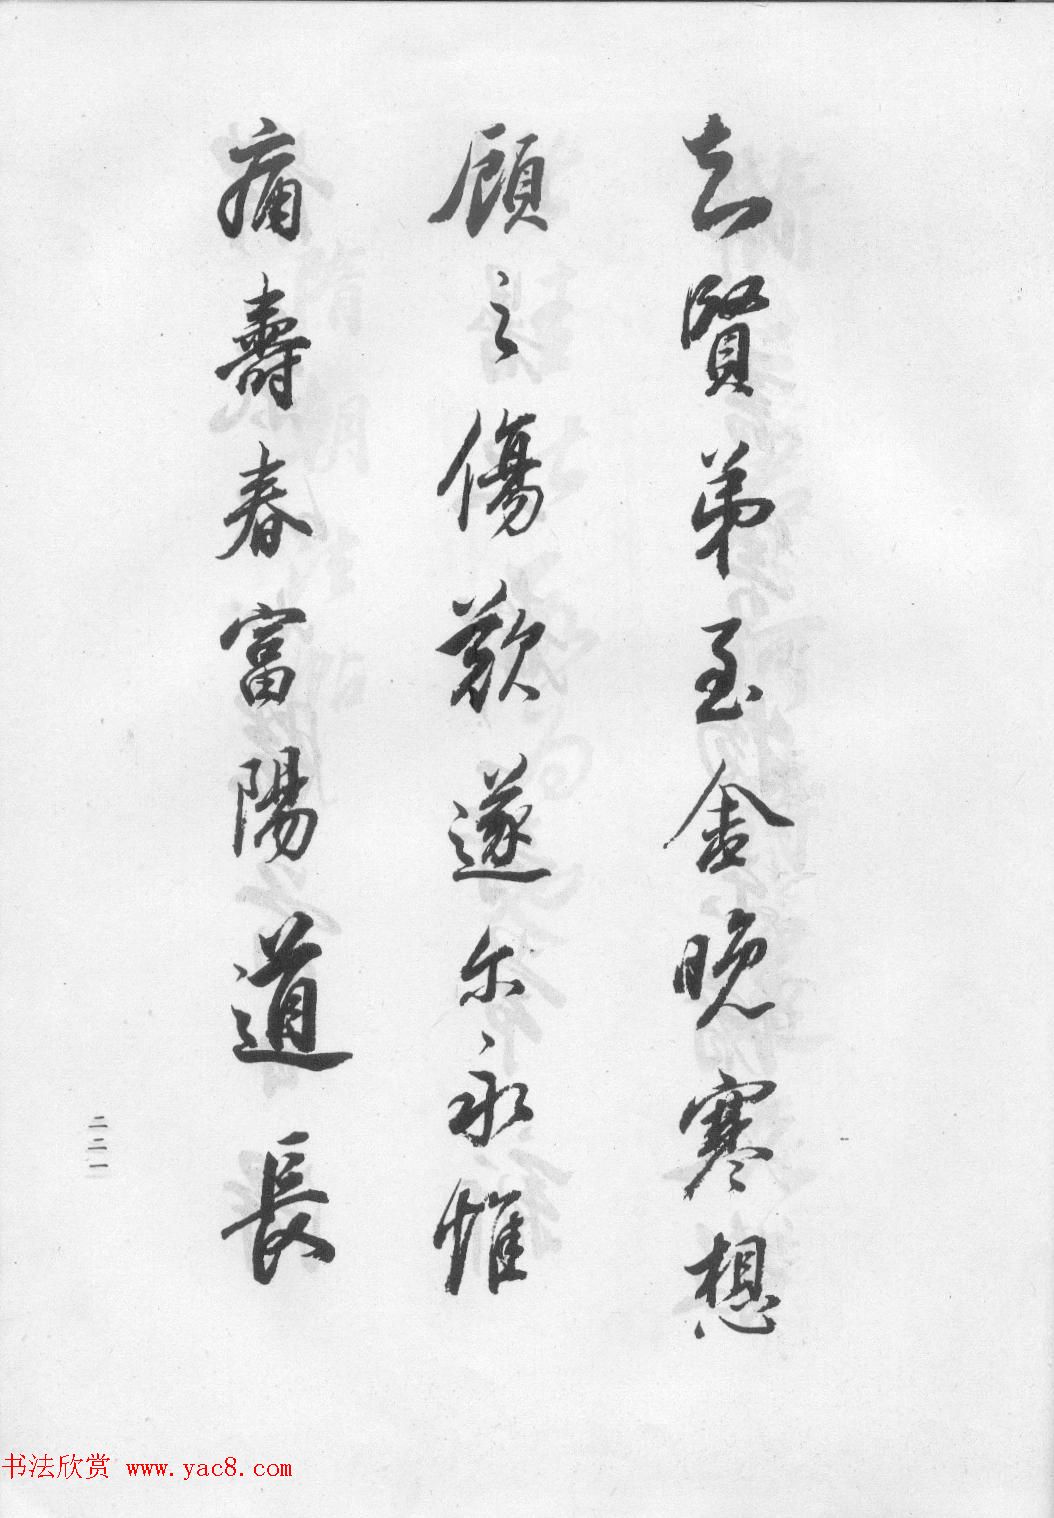 知賢弟至舍晚寒想
顧之傷歎遂尔永惟
痛壽春富陽道長
二二一
书法欣赏 www.yac8.com